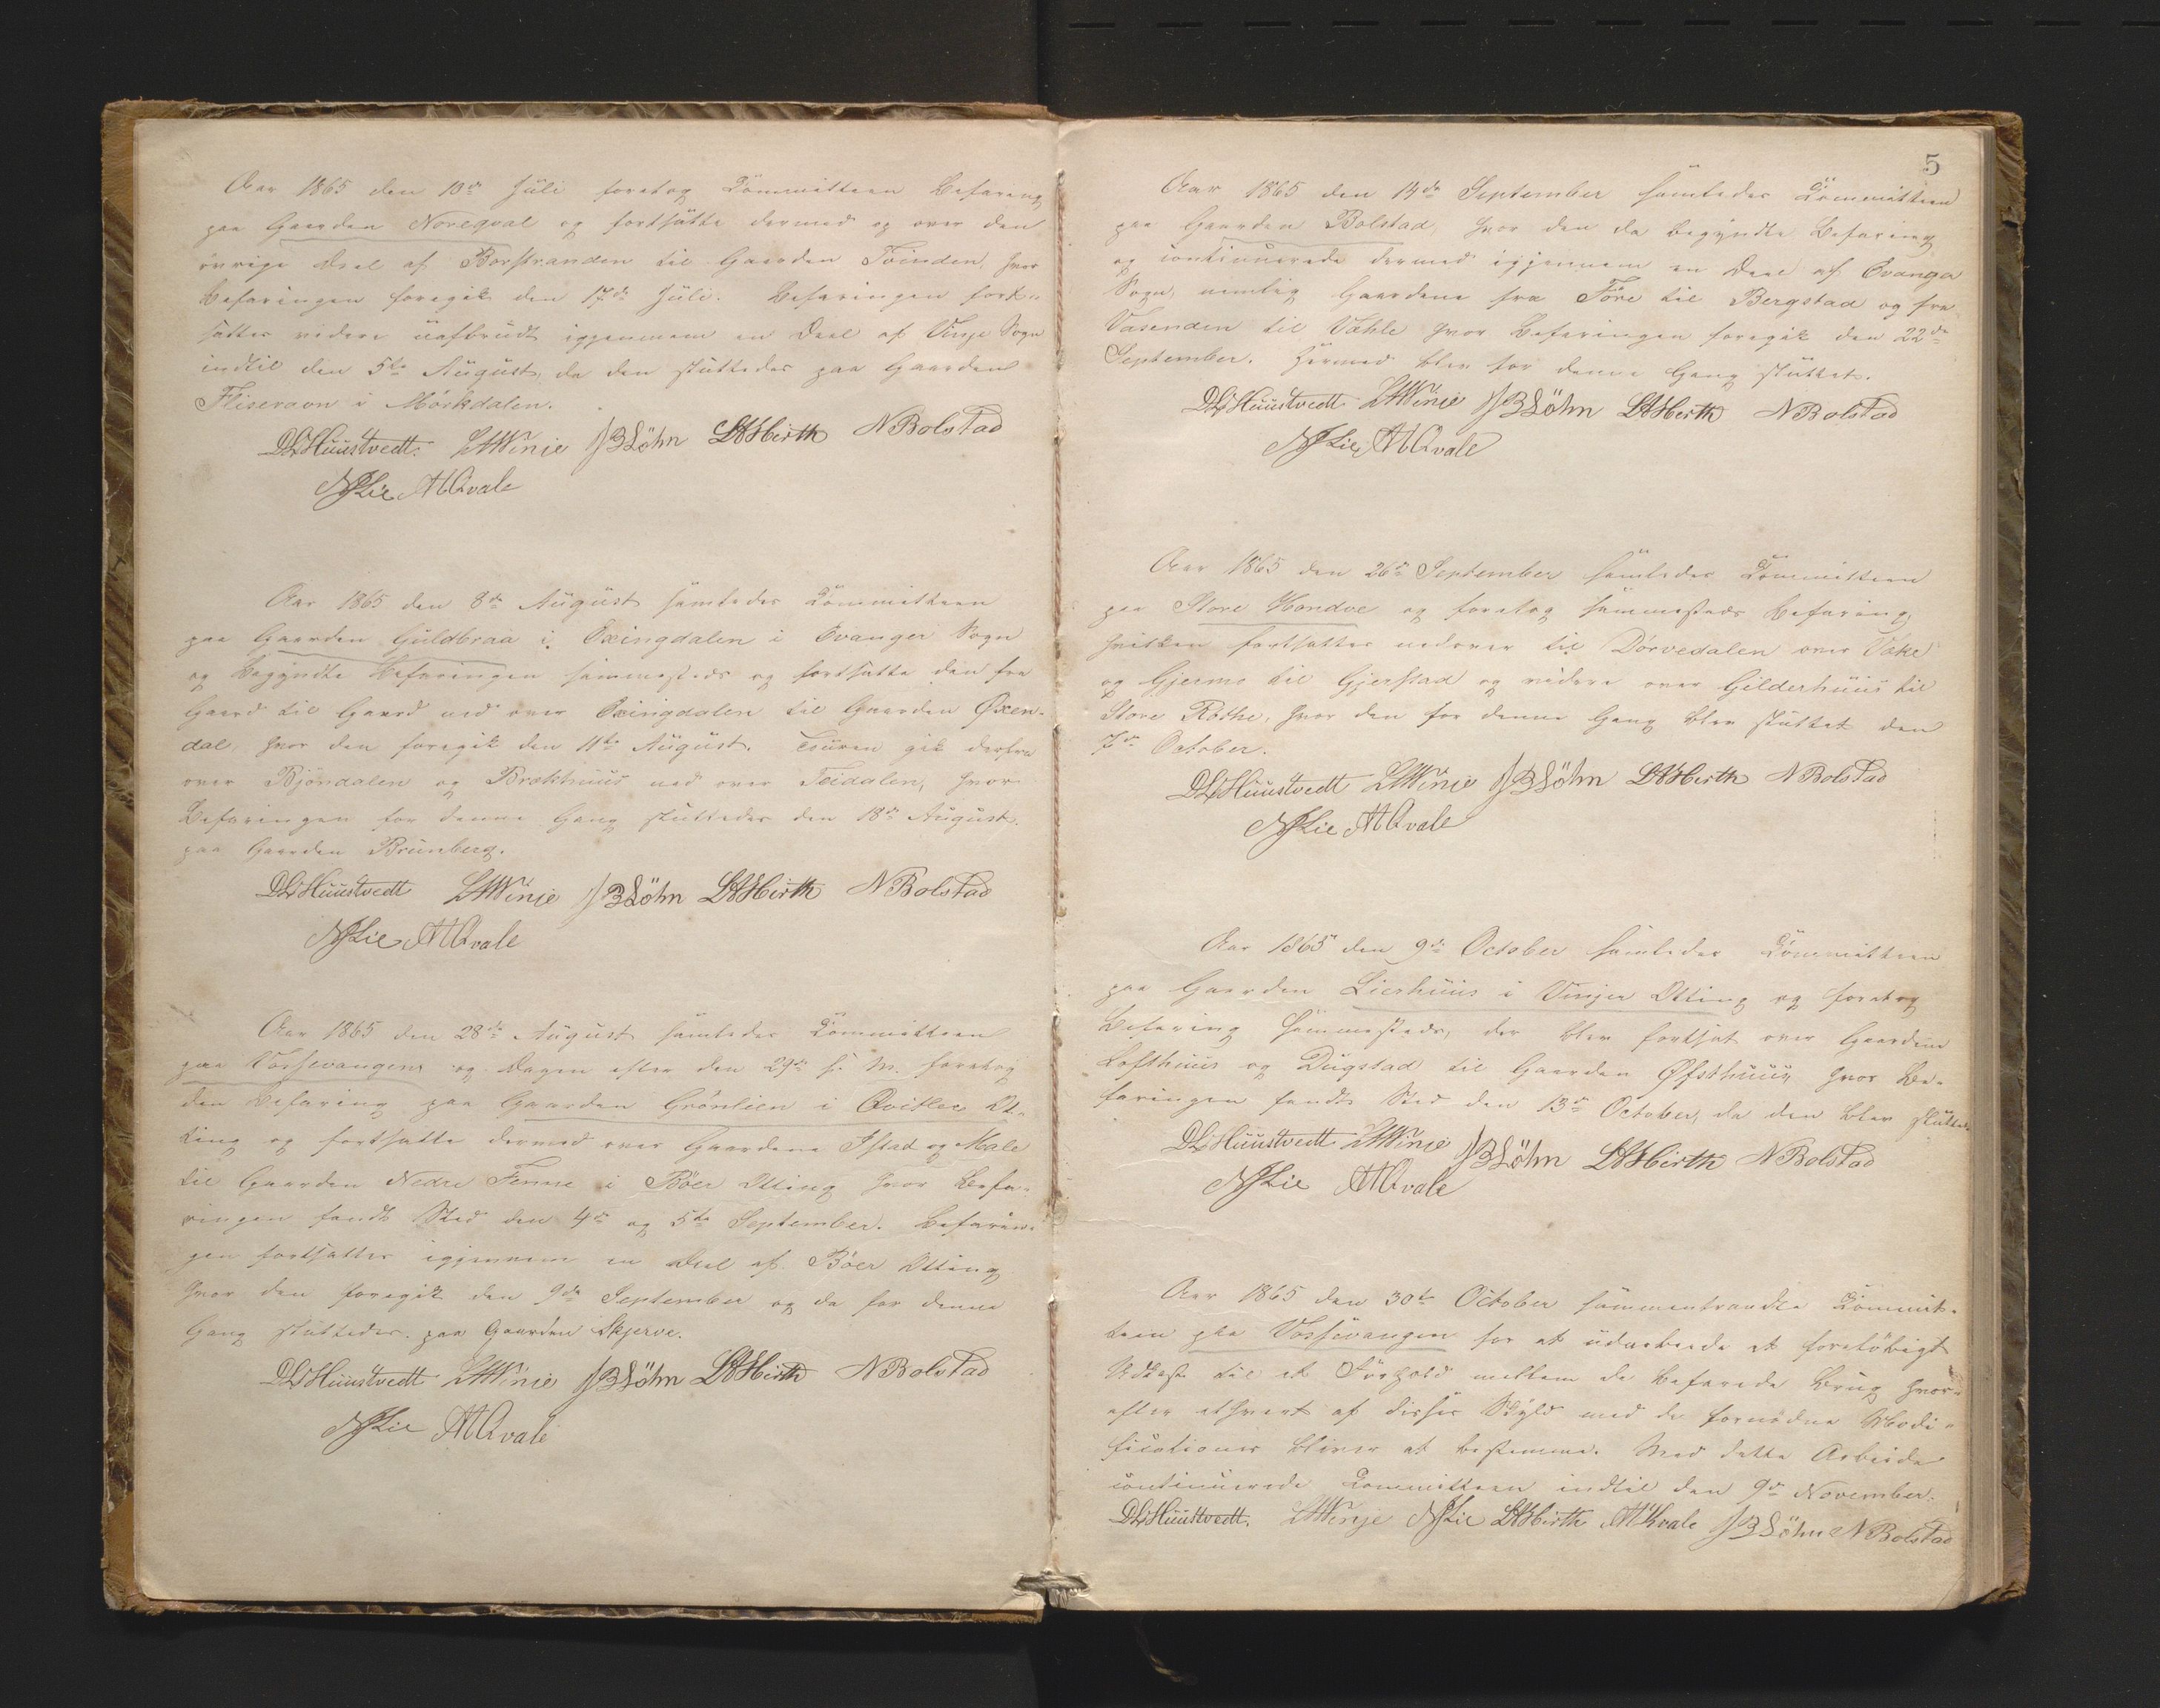 Aar 1865 den 10de Juli foretog Kommitteen Befaring
paa Gaarden Noreqval og fortsatte dermed og over den
övrige Deel af Borstranden til Gaarden Töinden, hvor
Befaringen foregik den 17de Juli. Befaringen fort-
sattes videre uafbrudt igjennem en Deel af Vinje Sogn
indtil den 5te August, da den sluttedes paa Gaarden
Fliseraon i Mörkdalen.
DLHuustvedt LAWinje JBLöhn LAHirth NBolstad
NJLie AAQvale
Aar 1865 den 8de August samledes Kommitteen
paa Gaarden Guldbraa i Exingdalen i Evanger Sogn
og begyndte Befaringen sammesteds og fortsatte den fra
Gaard til Gaard ned over Exingdalen til Gaarden Øxen-
dal, hvor den foregik den 11te August. Touren gik derfra
over Bjöndalen og Brækhuus ned over Teidalen, hvor
Befaringen for denne Gang sluttedes den 18de August
paa Gaarden Brunberg.
DLHuustvedt LAWinje JBLöhn LAHirth NBolstad
NJLie AAQvale
Aar 1865 den 28de August samledes Kommitteen
paa Vossevangen og Dagen efter den 29de s. M. foretog
den Befaring paa Gaarden Grönlien i Qvitler Ot-
ting og fortsatte dermed over Gaardene Istad og Male
til Gaarden Nedre Fenne i Böer Otting hvor Befa-
ringen fandt Sted den 4de og 5te September. Befarin-
gen fortsattes igjennem en Deel af Böer Otting
hvor den foregik den 9de September og da for denne
Gang sluttedes paa Gaarden Skjerve.
DLHuustvedt LAWinje JBLöhn LAHirth NBolstad
NJLie AAQvale
5
Aar 1865 den 14de September samledes Kommitteen
paa Gaarden Bolstad, hvor den da begyndte Befaring
og continuerede dermed igjennem en Deel af Evanger
Sogn, nemlig Gaardene fra Före til Bergstad og fra
Vasenden til Væhle hvor Befaringen foregik den 22de
September. Hermed blev for denne Gang sluttet.
DLHuustvedt LAWinje JBLöhn LAHirth NBolstad
NJLie AAQvale
Aar 1865 den 26de September samledes Kommitteen
paa Store Hondve og foretog sammesteds Befaring,
hvilken fortsattes nedover til Dörvedalen over Væke
og Gjerme til Gjerstad og videre over Gilderhuus til
Store Röthe, hvor den for denne Gang blev sluttet den
7de October.
DLHuustvedt LAWinje JBLöhn LAHirth NBolstad
NJLie AAQvale
Aar 1865 den 9de October samledes Kommitteen
paa Gaarden Lierhuus i Vinjer Otting og foretog
Befaring sammesteds, der blev fortsat over Gaardene
Lofthuus og Dugstad til Gaarden Øfsthuus, hvor Be-
faringen fandt Sted den 13de October, da den blev sluttet.
DLHuustvedt LAWinje JBLöhn LAHirth NBolstad
NJLie AAQvale
Aar 1865 den 30te October sammentraadte Kommit-
teen paa Vossevangen for at udarbeide et forelöbigt
Udkast til et Forhold mellem de befarede Brug hvor-
efter ethvert af disses Skyld med de fornödne Modi-
ficationer bliver at bestemme. Med dette Arbeide
continuerede Kommitteen indtil den 9de November.
DLHuustvedt. LAWinje NJLie LAHirth AAKvale JBLöhn NBolstad